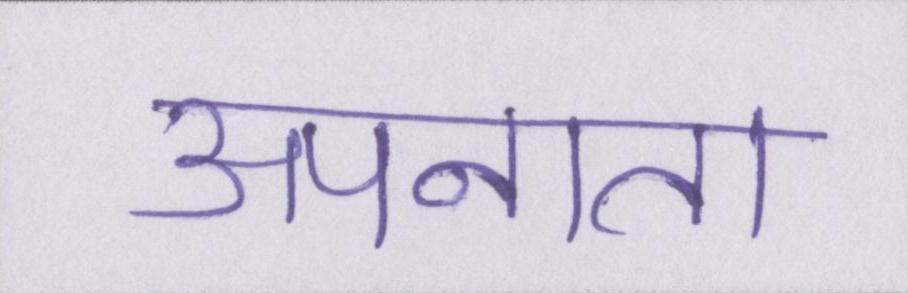 अपनाता